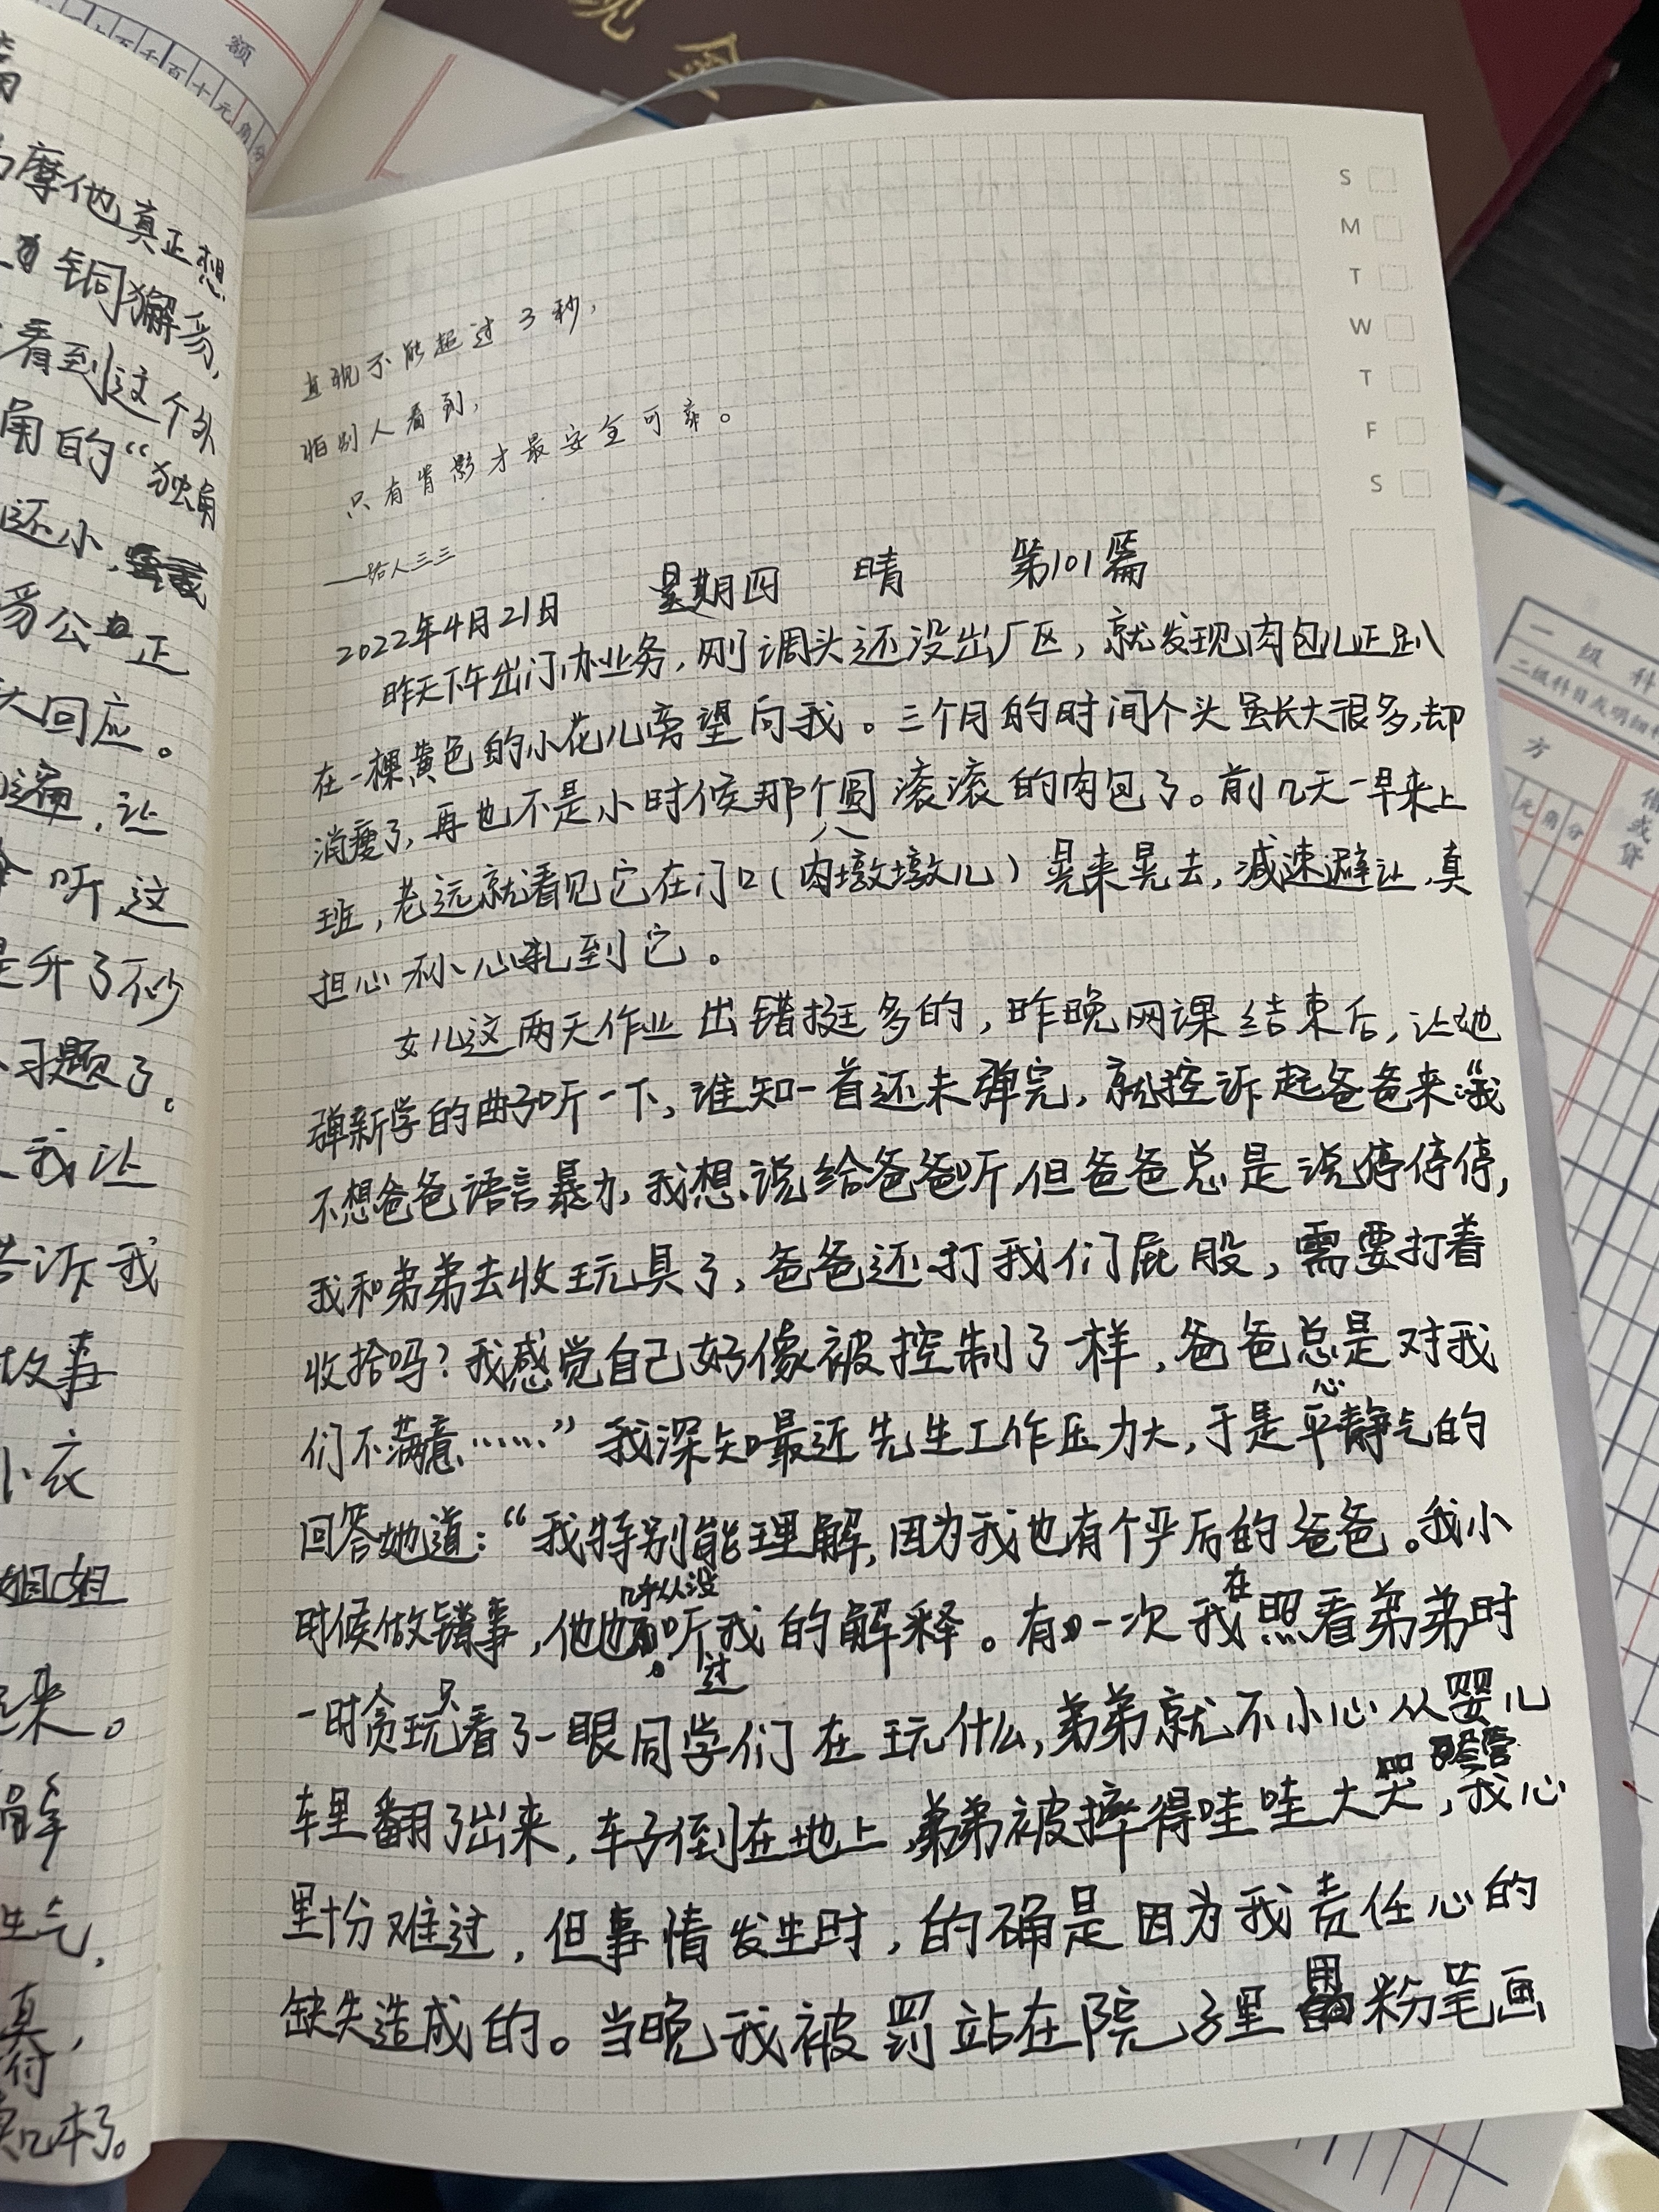 直视不能超过3秒,
怕别人看到,
只有背影才最安全可靠。
——路人三三
2022年4月21日 星期四 晴 第101篇
昨天下午出门办业务,刚调头还没出厂区,就发现肉包儿正趴
在一棵黄色的小花儿旁望向我。三个月的时间个头虽长大很多,却
消瘦了,再也不是小时候那个圆滚滚的肉包了。前几天一早来上
班,老远就看见它在门口(肉墩墩儿)晃来晃去,减速避让,真
担心不小心轧到它。
女儿这两天作业出错挺多的,昨晚网课结束后,让她
弹新学的曲子听一下,谁知一首还未弹完,就控诉起爸爸来:“我
不想爸爸语言暴力,我想说给爸爸听,但爸爸总是说停停停,
我和弟弟去收玩具了,爸爸还打我们屁股,需要打着
收拾吗?我感觉自己好像被控制了一样,爸爸总是对我
们不满意……”我深知最近先生工作压力大,于是平心静气的
回答她道:“我特别能理解,因为我也有个严后的爸爸。我小
时候做错事,他也几乎从没听过我的解释。有一次我在照看弟弟时
一时贪玩只看了一眼同学们在玩什么,弟弟就不小心从婴儿
车里翻了出来,车子倒在地上,弟弟被摔得哇哇大哭,我心
里十分难过,但事情发生时,的确是因为我责任心的
缺失造成的。当晚我被罚站在院子里用粉笔画
S
M
T
W
T
F
S
摩他真正想
铜獬豸,
看到这个外
角的“独角
还小,
豸公正
大回应。
遍,让
听这
升了不少
习题了。
我让
告诉我
故事
小衣
姐姐
来。
解
生气,
真,
几本了。
额
千百十元角分
现金
一级科
二级科目或明细科
方
元角分
借或贷